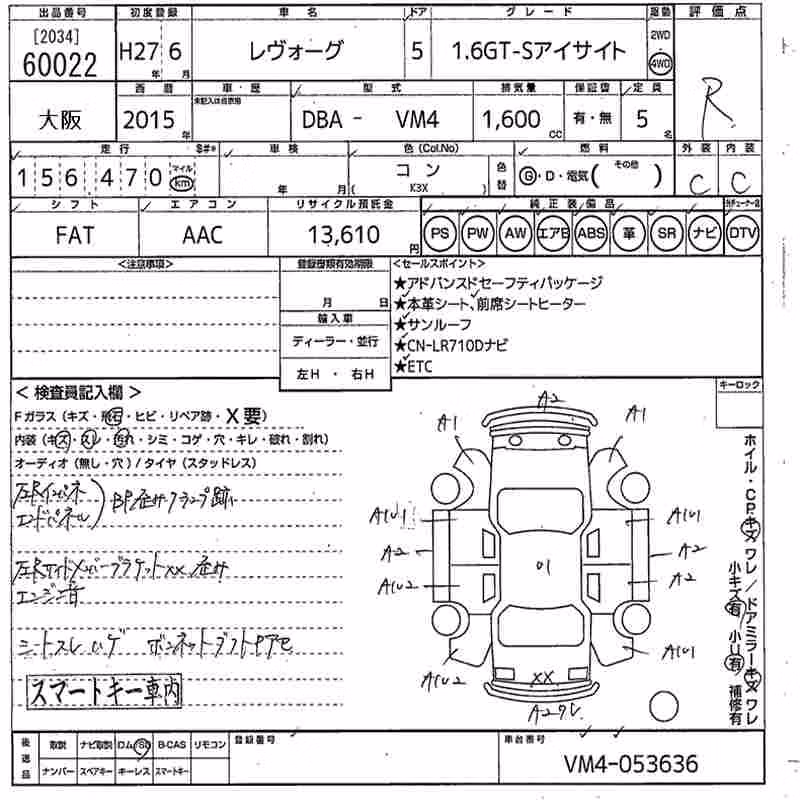 出品番号 初度登録 車名 ドア グレード 駆動 評価点
[2034] 60022 H27年 6月 レヴォーグ 5 1.6GT-Sアイサイト 2WD 4WD
R
西暦 車・歴 型式 排気量 保証書 定員
大阪 2015年 未記入は自家用 DBA - VM4 1,600cc 有・無 5名
走行 $#* 車検 色(Col.No) 燃料 外装 内装
156,470 マイル km 年 月 コン (K3X) 色替 G・D・電気( その他 ) C C
シフト エアコン リサイクル預託金 純正装備品
FAT AAC 13,610円 PS PW AW エアB ABS 革 SR ナビ DTV
<注意事項> 登録書類有効期限 <セールスポイント>
月 日
輸入車
ディーラー・並行
左H ・ 右H
★アドバンスドセーフティパッケージ
★本革シート、前席シートヒーター
★サンルーフ
★CN-LR710Dナビ
★ETC
<検査員記入欄> キーロック
Fガラス(キズ・飛石・ヒビ・リペア跡・X要)
内装(キズ・スレ・汚れ・シミ・コゲ・穴・キレ・破れ・割れ)
オーディオ(無し・穴)/タイヤ(スタッドレス)
左右インパネ
エンドパネル
クランプ跡
エンジン音
スマートキー車内
A2
A1 A1
A1U1 A1U1
A2 A2
A1U2 A2
01
A1U2 A1U1
XX
ホイル・CPキズワレ/ドアミラーキズワレ
小キズ有 小U有 補修有
後送品 取説 ナビ取説 ロム/SD B-CAS リモコン 登録番号 車台番号
ナンバー スペアキー キーレス スマートキー VM4-053636